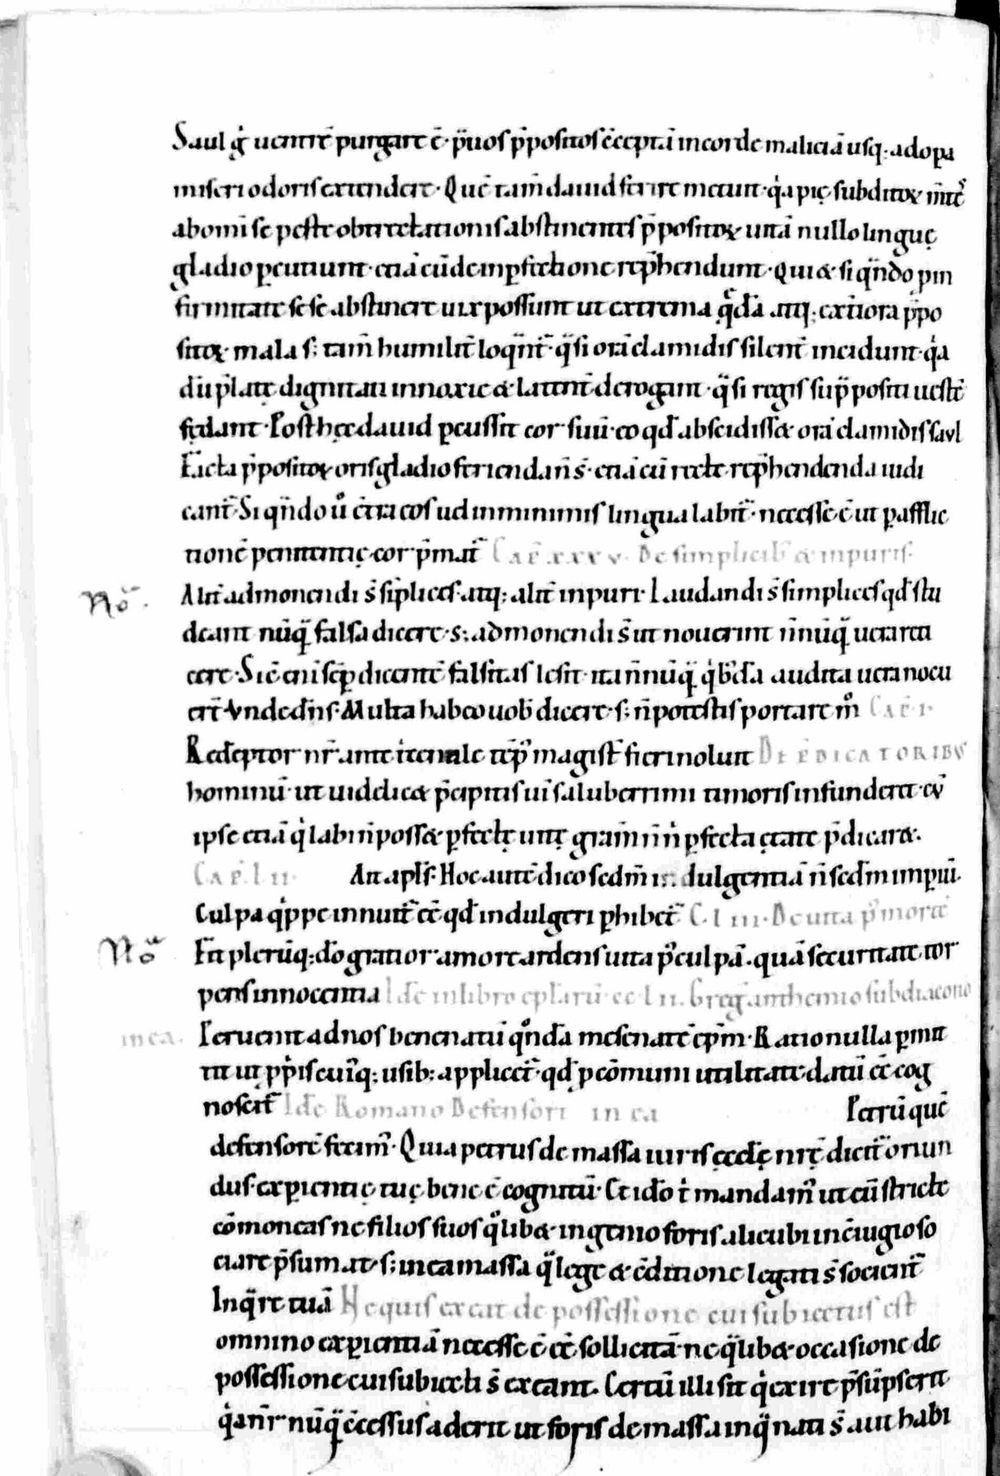 Saul g̊ uentrẽ purgare ẽ · p̃uos p̃positos c̃ceptã in corde maliciã usq; ad opa
miseri odoris extendere · Quẽ tam̃ dauid ferire metuit · q̊a pię subditoꝝ m̃teˢ
abom̃i se peste obtrectationis abstinentes p̃positoꝝ uitã nullo linguę
gladio ꝑcutiunt · etiã cũ de inꝑfectione rep̃hendunt · Qui & si qñdo ꝓ in
firmitate sese abstinere uix possunt ut extrema q̃dã atq; ext̃iora p̃po
sitoꝝ mala s; tam̃ humilit̃ loq̃nt̃ · q̃si orã clamidis silent̃ incidunt · q̊a
dũ p̃latę dignitati innoxie & latent̃ derogant · q̃si regis sup̃positi uestẽ
fędant · Post hęc dauid ꝑcussit cor suũ · eo qd̃ abscidiss& orã clamidis saul
Facta p̃positoꝝ oris gladio feriendañ s̃ · etiã cũ recte rep̃hendenda iudi
cant̃ · Si qñdo u̇̊ c̃tra eos uel in minimis lingua labit̃ · necesse ẽ ut ꝑ afflic
tionẽ penitentię cor p̃mat̃ Cap̃ . xxxv . De simplicib; & inpuris ·
Nõ · Alit̃ admonendi s̃ siplices · atq; alit̃ inpuri · Laudandi s̃ simplices qd̃ stu
deant nũq̃ falsa dicere · s; admonendi s̃ ut nouerint ñnũq̃ uera ta
cere · Sic̃ eni sẽp dicentẽ falsitas lesit · ita ñnũq̃ q̊bdã audita uera nocu
er̃t · Vnde dñs · Multa habeo uob̃ dicere · s; ñ potestis portare m̊ Cap̃ · I ·
Redẽptor nr̃ ante tricennale tẽp̃ magist̃ fieri noluit De p̃dicatoribus
hominũ · ut uidelic& p̃cipitis uim saluberrimi timoris infunderet · cũ
ipse etiã q̊ labi ñ poss& · ꝑfectę uitę gram̃ ñ ñ ꝑfecta ętate p̃dicar& ·
Cap̃ · LII · Ait apls̃ · Hoc autẽ dico sedm̃ indulgentiã ñ sedm̃ imperiũ ·
Culpa q̊ppe innuit̃ ẽẽ qd̃ indulgeri ꝓhibet̃ C · LIII · De uita p̃ mortẽ
Nõ Fit plerũq; dõ gratior amore ardens uita p̃ culpã · quã securitate tor
pens innocentia Ide in libro ep̃larũ · cc · LII · Greg̃ anthemio subdiacono
in ea · Peruenit ad nos benenatũ q̊ndã mesenatẽ ep̃m · Ratio nulla ꝑmit
tit ut ꝓp̃is cui q; usib; applicet̃ · qd̃ ꝓ cõmuni utilitate datũ ẽẽ cog
noscit̃ Idẽ Romano Defensori in ea Petrũ quẽ
defensorẽ fecim̃ · Quia petrus de massa iuris ęcclę nr̃ę dicit̃ oriun
dus · exꝑientię tuę bene ẽ cognitũ · Et idõ t̊ mandam̃ ut eũ stricte
cõmoneas ne filios suos q̊lib& · ingenio foris alicubi in c̃iugio so
ciare p̃sumat · s; in ea massa q̃ lege & c̃ditione legati s̃ socient̃
Inq̃re tuã Ne quis exeat de possessione cui subiectus est
omnino exꝑientiã necesse ẽ ẽẽ sollicitã · ne q̃lib& · occasione de
possessione cui subiecti s̃ exeant · Certũ illi sit q̊ exire p̃sũpserit
q̊a nr̃ nũq̃ c̃cessus aderit ut foris de massa inq̃ nati s̃ aut habi